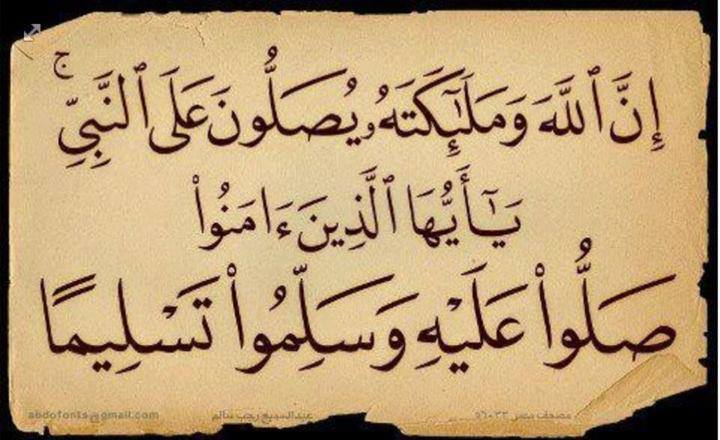 إِنَّ ٱللَّهَ وَمَلَـٰٓئِكَتَهُۥ يُصَلُّونَ عَلَى ٱلنَّبِىِّ ۚ
يَـٰٓأَيُّهَا ٱلَّذِينَ ءَامَنُوا۟
صَلُّوا۟ عَلَيْهِ وَسَلِّمُوا۟ تَسْلِيمًا
مصحف مصر ٥٦٠٣٣ عبدالسميع رجب سالم abdofonts@gmail.com